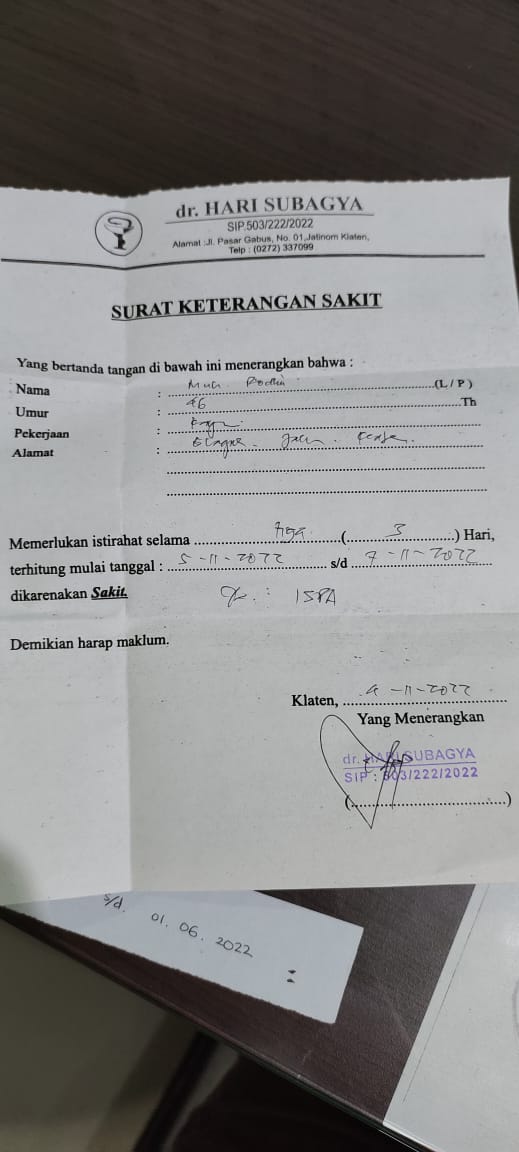 dr. HARI SUBAGYA
SIP.503/222/2022
Alamat :Jl. Pasar Gabus, No. 01,Jatinom Klaten,
Telp : (0272) 337099
SURAT KETERANGAN SAKIT
Yang bertanda tangan di bawah ini menerangkan bahwa :
Nama : Muh. (L / P )
Umur : 46 Th
Pekerjaan :
Alamat :
Memerlukan istirahat selama tiga (3) Hari,
terhitung mulai tanggal : 5-11-2022 s/d 7-11-2022
dikarenakan Sakit. : ISPA
Demikian harap maklum.
Klaten, 4-11-2022
Yang Menerangkan
dr. HARI SUBAGYA
SIP : 503/222/2022
(..............................)
s/d. 01. 06. 2022